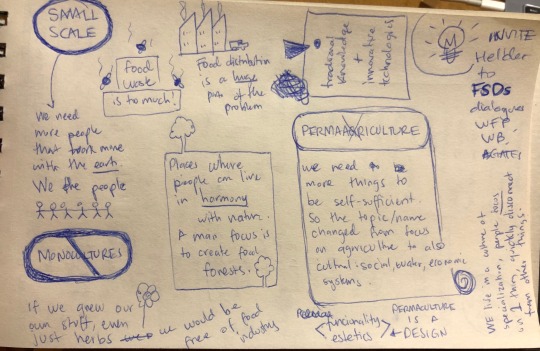 SMALL
SCALE
We need
more people
that work mine
with the earth.
We the people
MONOCULTURES
If we grew our
own stuff, even
just herbs we would be
free of food
industries
food
waste
is to much!
Food distribution
is a huge
part of the
problem
Places where
people can live
in hormony
with nature.
A man focus is
to create food
forests.
traditional
knowledge
+
innovative
technologies
PERMAAGRICULTURE
we need
more things to
be self-sufficient.
So the topic/name
changed from focus
on agriculture to also
cultural-social, water, economic
systems
funcionality
estetics
PERMACULTURE
IS A
DESIGN
M
INVITE
to
FSDs
dialogues
WFP
WB,
We live in a culture of
specialization, people focus
on 1 thing, quickly disconnect
from other things.